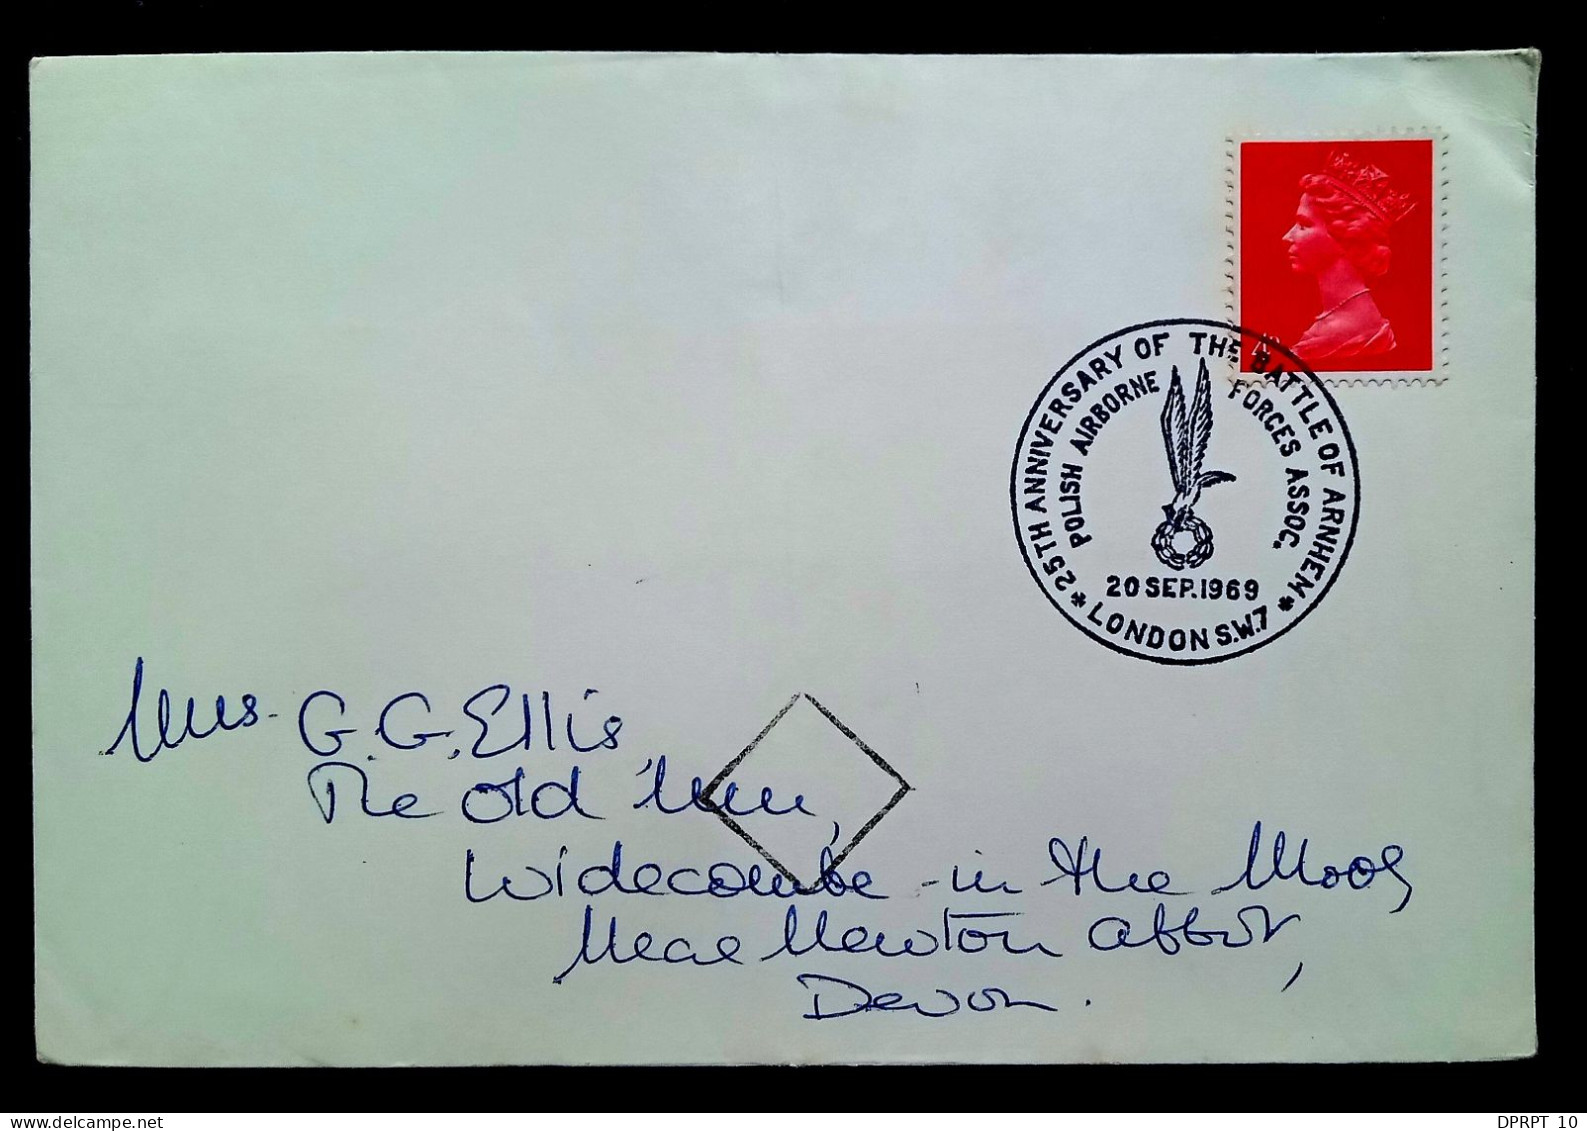 4D
* 25TH ANNIVERSARY OF THE BATTLE OF ARNHEM *
POLISH AIRBORNE FORCES ASSOC.
20 SEP. 1969
LONDON S.W.7
Mrs. G. G. Ellis,
The Old Inn,
Widecombe-in the Moor,
Near Newton Abbot,
Devon.
www.delcampe.net
DPRPT_10